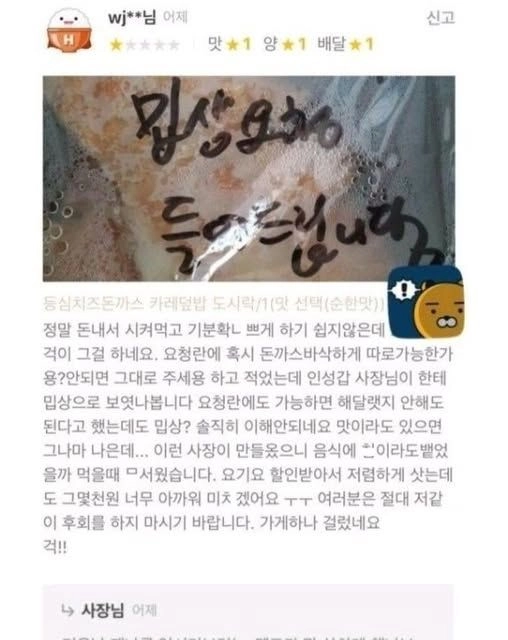 wj**님 어제
신고
★★★★★ 맛★1 양★1 배달★1
밉상요청
들어드립니다
등심치즈돈까스 카레덮밥 도시락/1(맛 선택(순한맛))
정말 돈내서 시켜먹고 기분확ㄴ쁘게 하기 쉽지않은데
걱이 그걸 하네요. 요청란에 혹시 돈까스바삭하게 따로가능한가
용?안되면 그대로 주세용 하고 적었는데 인성갑 사장님이 한테
밉상으로 보엿나봅니다 요청란에도 가능하면 해달랫지 안해도
된다고 했는데도 밉상? 솔직히 이해안되네요 맛이라도 있으면
그나마 나은데... 이런 사장이 만들옸으니 음식에 이라도뱉었
을까 먹을때 ㅁ서웠습니다. 요기요 할인받아서 저렴하게 삿는데
도 그몇천원 너무 아까워 미ㅊ겠어요 ㅜㅜ 여러분은 절대 저같
이 후회를 하지 마시기 바랍니다. 가게하나 걸렀네요
걱!!
↳ 사장님 어제